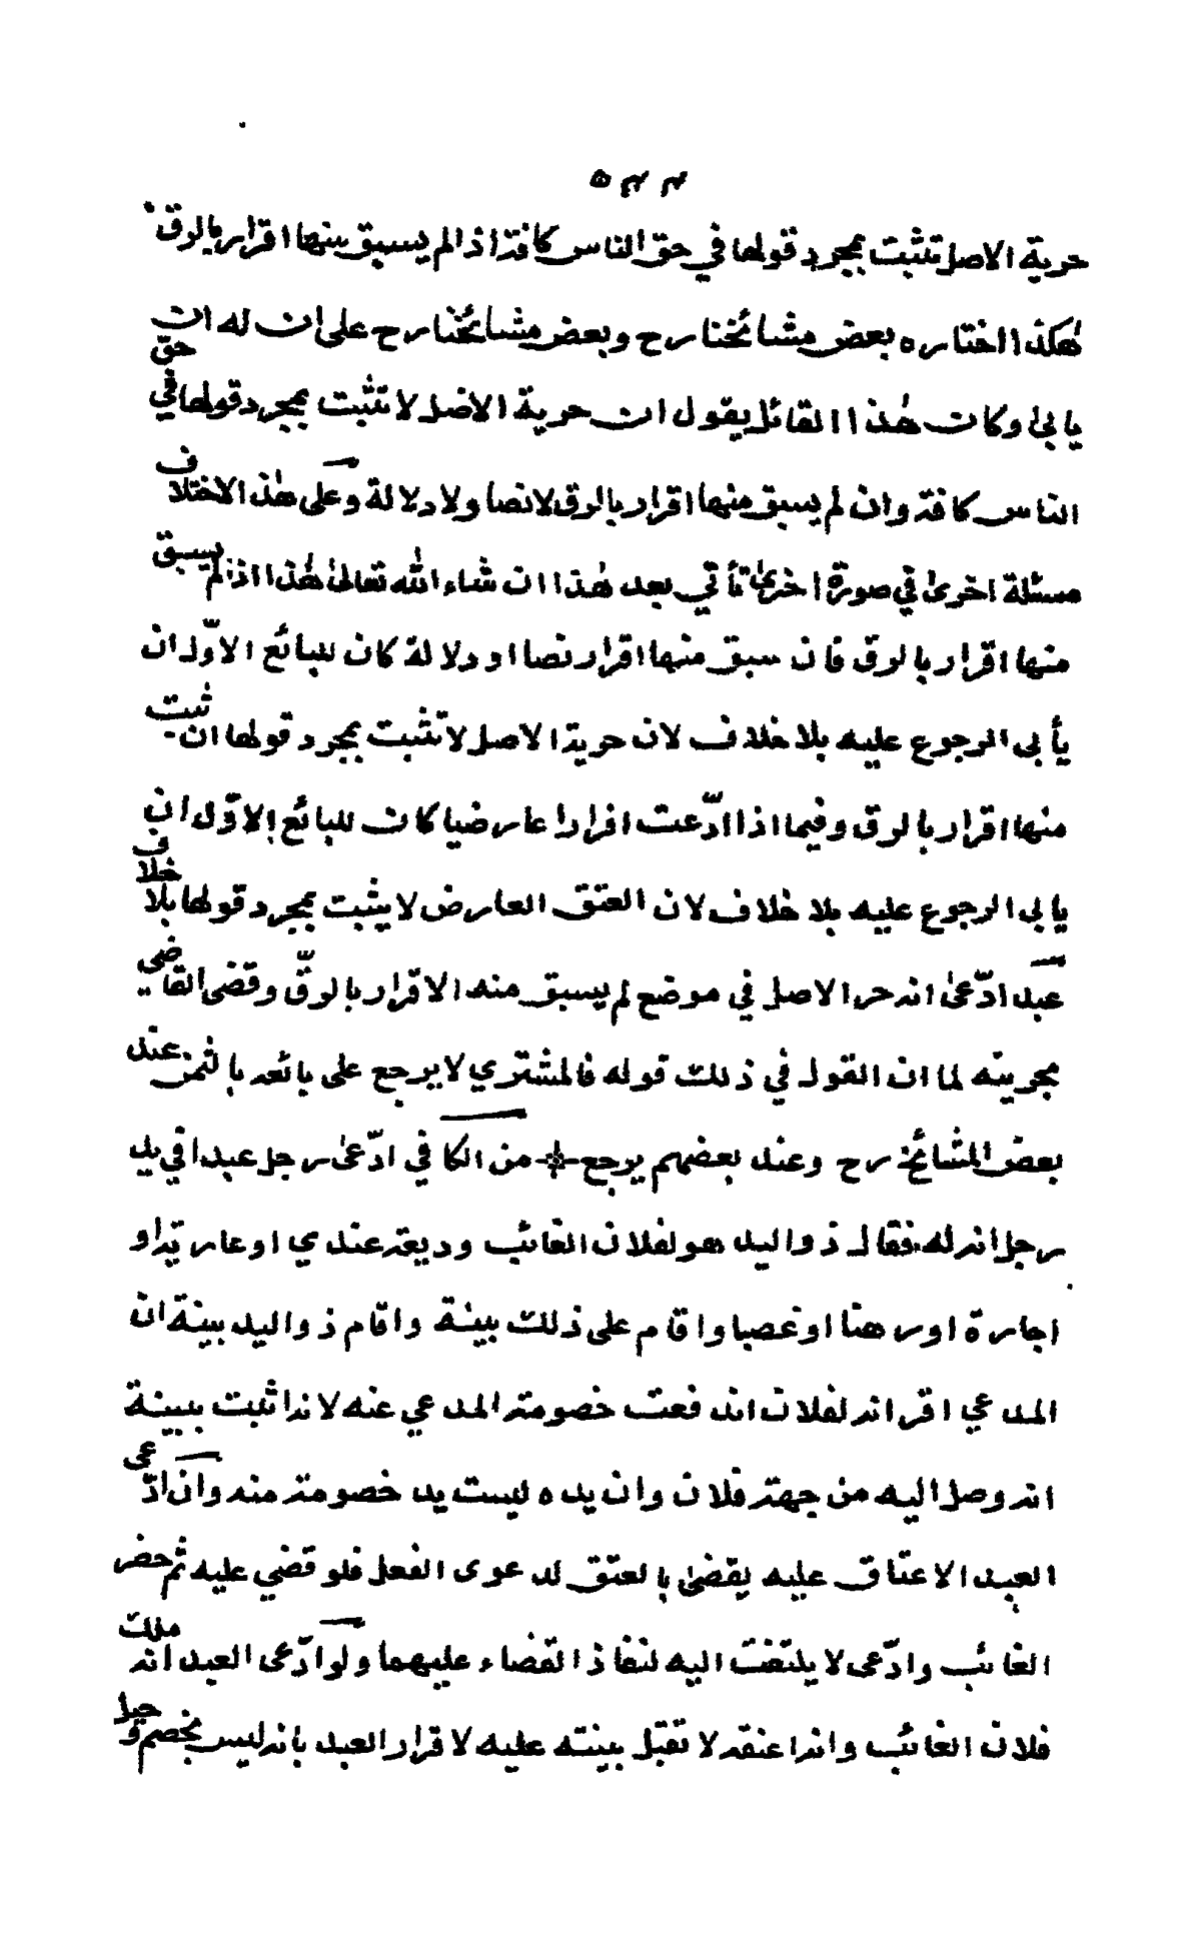 ٥٤٣
حرية الاصل تثبت بمجرد قولها في حق الناس كافة اذا لم يسبق منها اقرار بالرق
هكذا اختاره بعض مشائخنا رح وبعض مشائخنا رح على ان له ان
يابى وكان هذا القائل يقول ان حرية الاصل لا تثبت بمجرد قولها في حق
الناس كافة وان لم يسبق منها اقرار بالرق لا نصا ولا دلالة وعلى هذا الاختلاف
مسئلة اخرى في صورة اخرى تأتي بعد هذا ان شاء الله تعالى هذا اذا لم يسبق
منها اقرار بالرق فان سبق منها اقرار نصا او دلالة كان للبائع الاوّل ان
يأبى الرجوع عليه بلا خلاف لان حرية الاصل لا تثبت بمجرد قولها ان ثبت
منها اقرار بالرق وفيما اذا ادّعت اقرارا عارضيا كان للبائع الاوّل ان
يابى الرجوع عليه بلا خلاف لان العتق العارض لا يثبت بمجرد قولها بلا خلاف
عبد ادّعى انه حر الاصل في موضع لم يسبق منه الاقرار بالرقّ وقضى القاضي
بحريته لما ان القول في ذلك قوله فالمشتري لا يرجع على بائعه بالثمن عند
بعض المشائخ رح وعند بعضهم يرجع * من الكافي ادّعى رجل عبدا في يد
رجل انه له فقال ذو اليد هو لفلان الغائب وديعة عندي او عارية او
اجارة او رهنا او غصبا واقام على ذلك بينة واقام ذو اليد بينة ان
المدعي اقر انه لفلان اندفعت خصومة المدعي عنه لانه اثبت ببينة
انه وصل اليه من جهة فلان وان يده ليست يد خصومة منه وان ادّعى
العبد الاعتاق عليه يقضى بالعتق لدعوى الفعل فلو قضي عليه ثم حضر
الغائب وادّعى لا يلتفت اليه لنفاذ القضاء عليهما ولو ادّعى العبد انه ملك
فلان الغائب وانه اعتقه لا تقبل بينته عليه لاقرار العبد بانه ليس بخصم و حيل